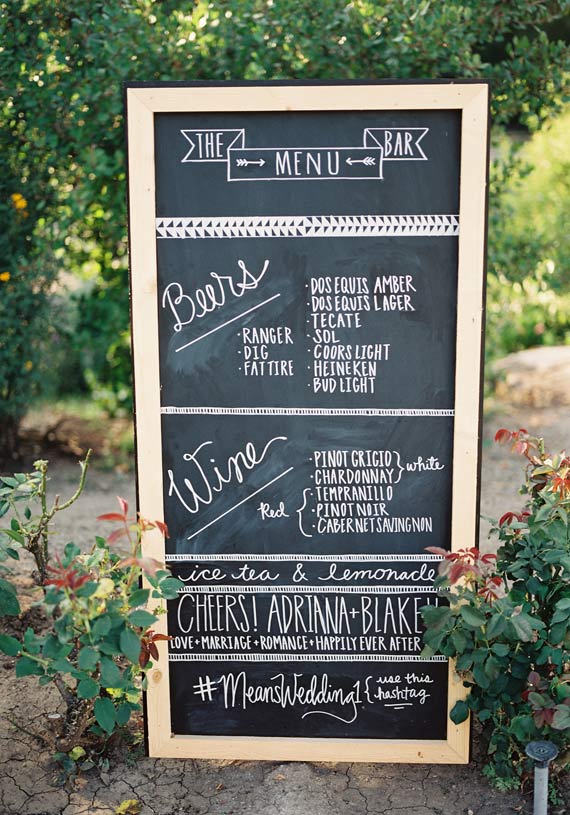 THE MENU BAR
Beers
· RANGER
· DIG
· FAT TIRE
· DOS EQUIS AMBER
· DOS EQUIS LAGER
· TECATE
· SOL
· COORS LIGHT
· HEINEKEN
· BUD LIGHT
Wine
· PINOT GRIGIO
· CHARDONNAY
white
Red
· TEMPRANILLO
· PINOT NOIR
· CABERNET SAVINGNON
ice tea & lemonade
CHEERS! ADRIANA + BLAKE!!
LOVE + MARRIAGE + ROMANCE + HAPPILY EVER AFTER
#MeansWedding1
use this
hashtag